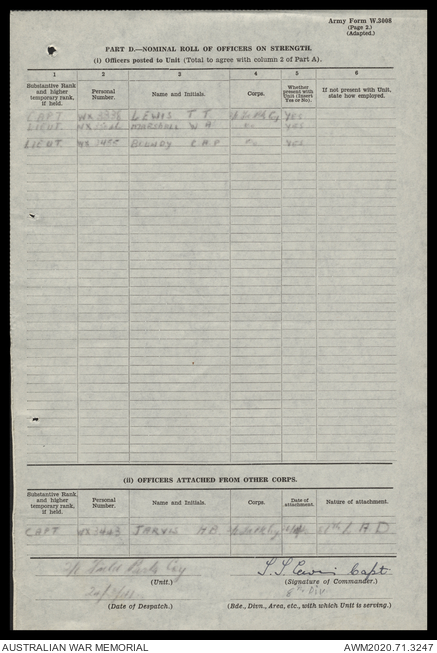 Army Form W.3008
(Page 2.)
(Adapted.)
PART D.—NOMINAL ROLL OF OFFICERS ON STRENGTH.
(i) Officers posted to Unit (Total to agree with column 2 of Part A).
1 2 3 4 5 6
Substantive Rank and higher temporary rank, if held. Personal Number. Name and Initials. Corps. Whether present with Unit (Insert Yes or No). If not present with Unit, state how employed.
CAPT LEWIS T. T. YES
LIEUT. MARSHALL W A YES
LIEUT. YES
(ii) OFFICERS ATTACHED FROM OTHER CORPS.
Substantive Rank, and higher temporary rank, if held. Personal Number. Name and Initials. Corps. Date of attachment. Nature of attachment.
CAPT JARVIS H B
(Unit.)
Capt.
(Signature of Commander.)
8th Div
(Date of Despatch.)
(Bde., Divn., Area, etc., with which Unit is serving.)
AUSTRALIAN WAR MEMORIAL
AWM2020.71.3247